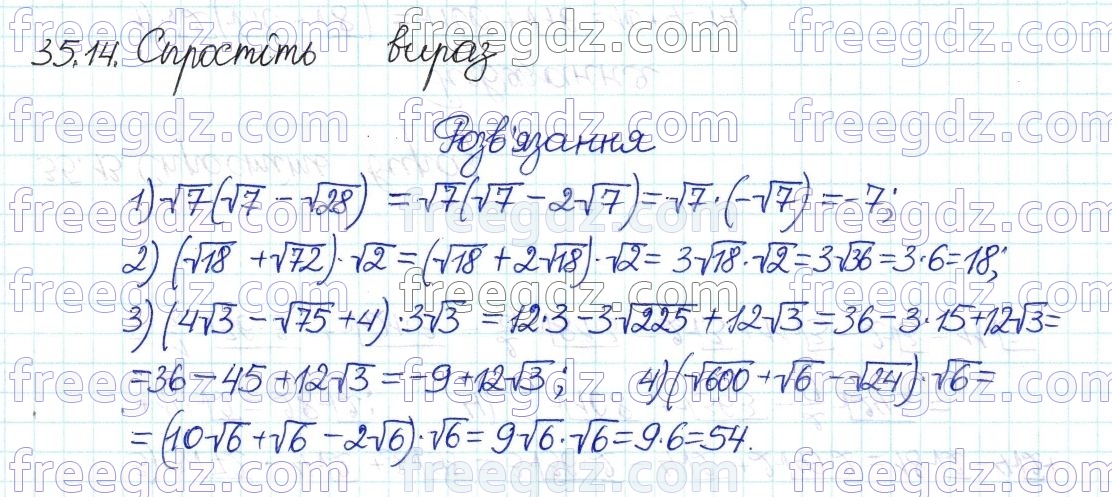 35.14. Спростіть вираз
Розв'язання
1) √7(√7 - √28) = √7(√7 - 2√7) = √7·(-√7) = -7;
2) (√18 + √72)·√2 = (√18 + 2√18)·√2 = 3√18·√2 = 3√36 = 3·6 = 18;
3) (4√3 - √75 + 4)·3√3 = 12·3 - 3√225 + 12√3 = 36 - 3·15 + 12√3 =
= 36 - 45 + 12√3 = -9 + 12√3; 4) (√600 + √6 - √24)·√6 =
= (10√6 + √6 - 2√6)·√6 = 9√6·√6 = 9·6 = 54.
freegdz.com